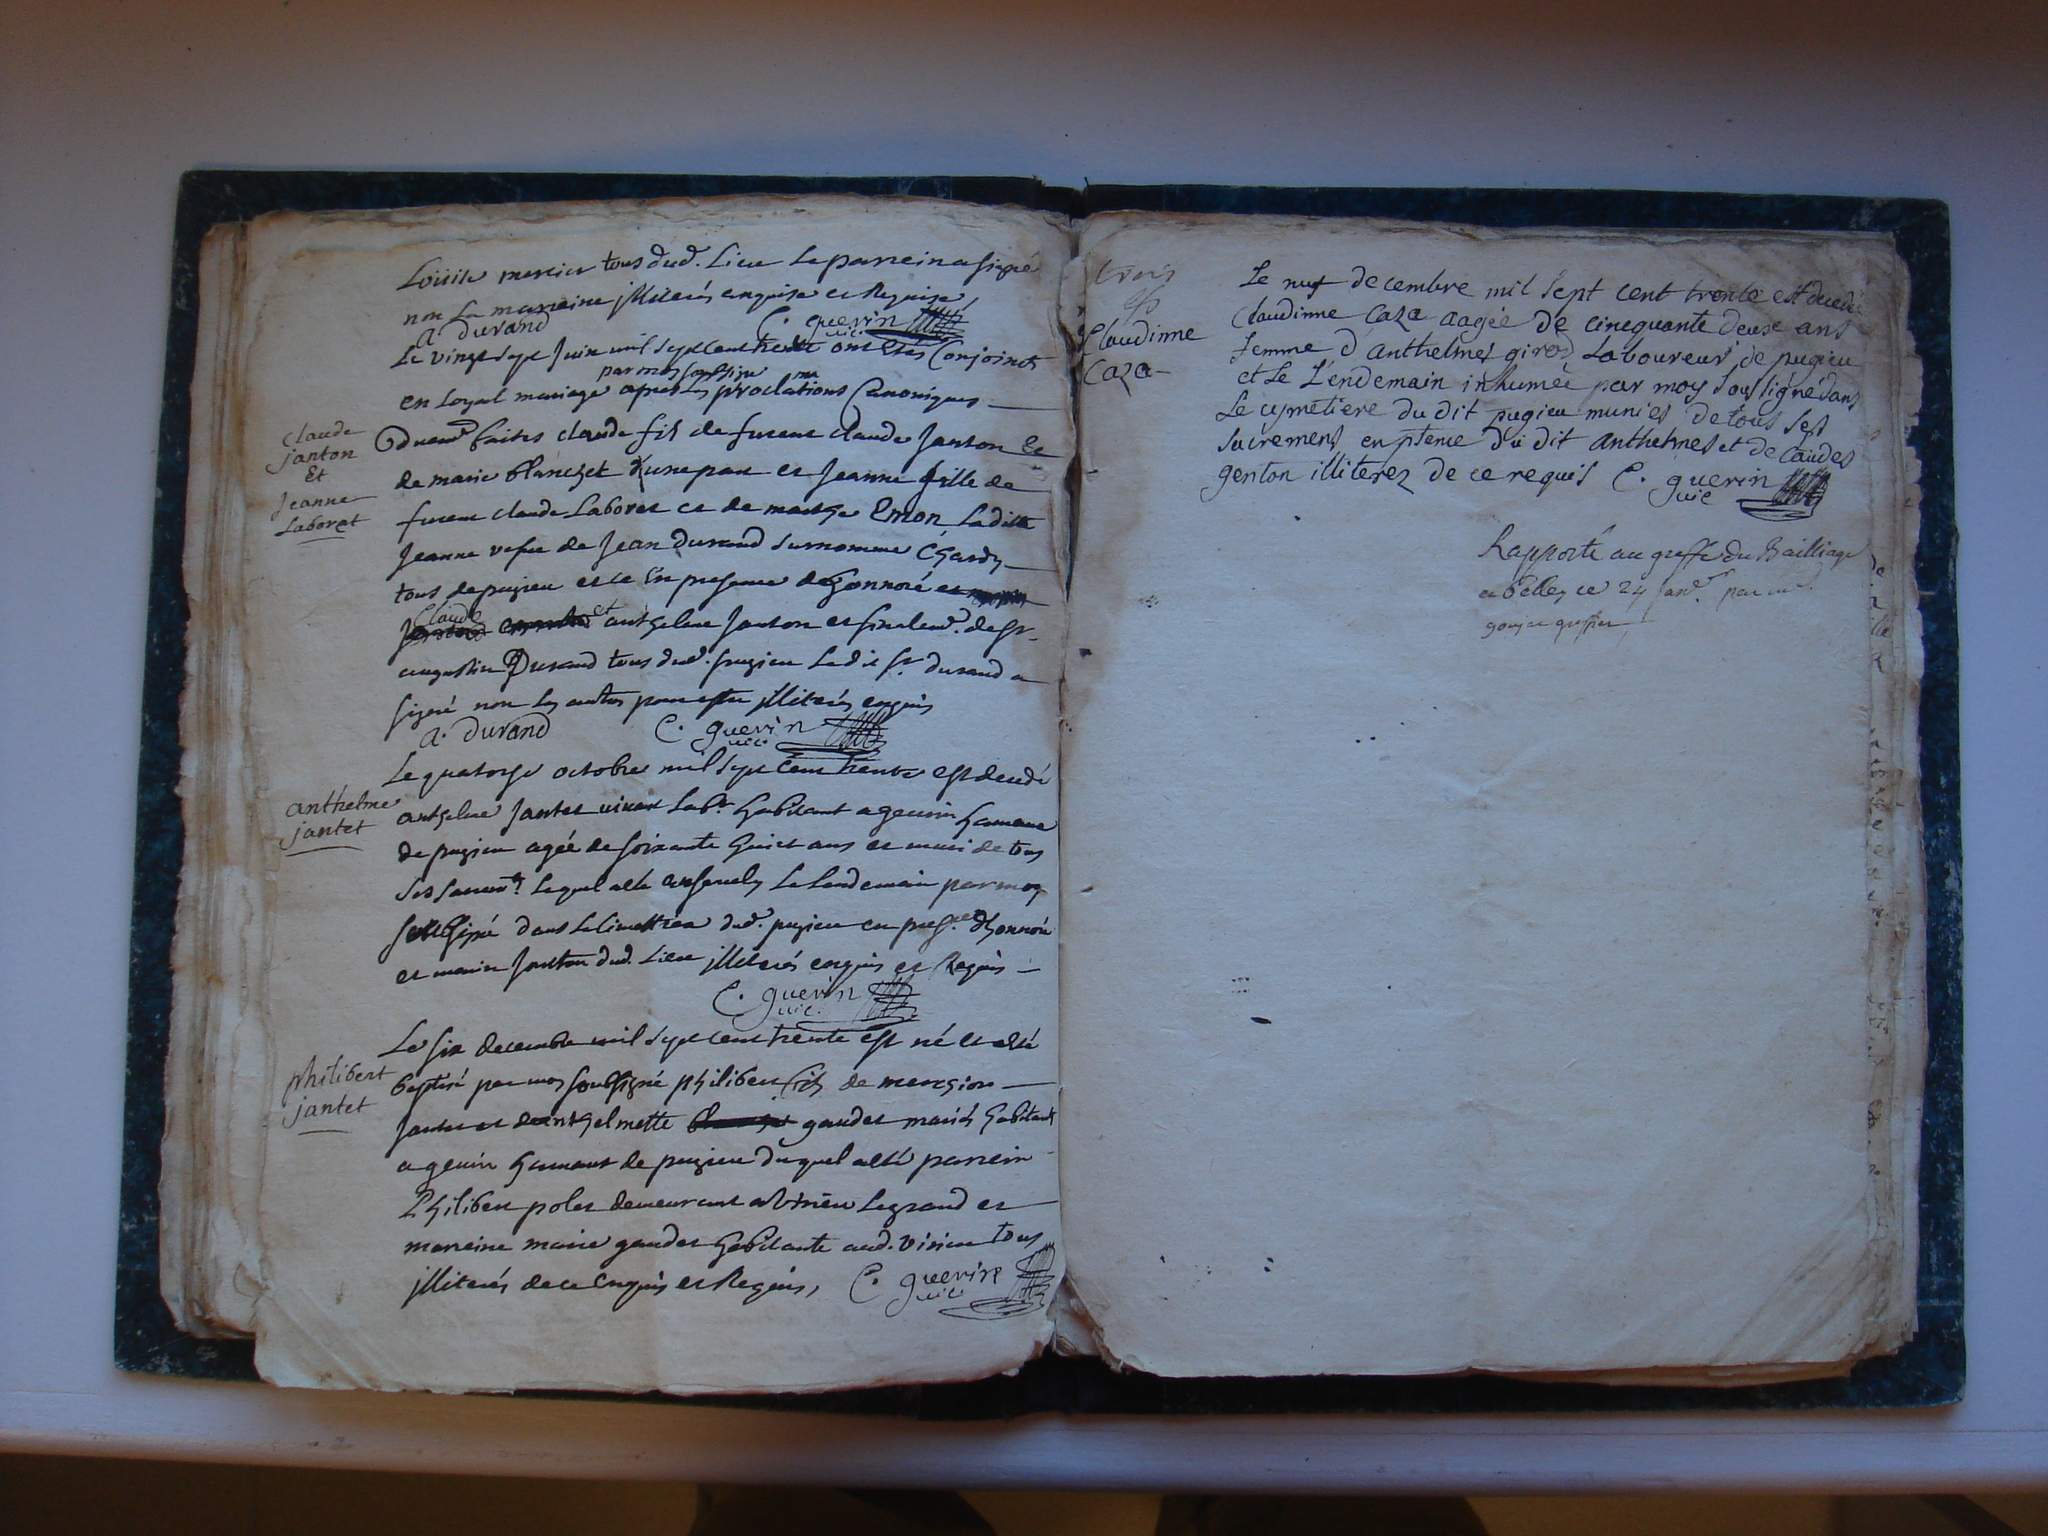 Loüise mercier tous dud. Lieu Le parrein a signé
non La marreine jlliterés enquise et Requise,
A. Durand C. guerin vic.
Le vingt sept Juin mil sept cent trente ont étés Conjoincts
par moy soussigné
en Loyal mariage apres Les proclamations Canoniques
claude janton Et jeanne Laboret
Duem.t faites claude fils de furent claude Janton et
de marie blanchet d'une part et Jeanne fille de
furent claude Laboret et de marthe Emon Laditte
Jeanne vefue de Jean Durand surnommé Chardy
tous de pugieu et ce En presence de honnoré et
Claude et anthelme Janton et finalem.t de Sr.
augustin Durand tous dud. pugieu Le dit Sr. durand a
signé non Les autres pour estre jlliterés enquis
A. Durand C. guerin vic.
anthelme jantet
Le quatorze octobre mil sept cent trente est decedé
anthelme Jantet vivant Lab.r habitant a geuin hameau
de pugieu agée de soixante huict ans et muni de tous
ses sacrem.ts Lequel a esté enseuely Le Lendemain par moy
soussigné dans Le cimettiere dud. pugieu en pres.ce d'honnoré
et Janton dud. Lieu jlliterés enquis et Requis
C. guerin vic.
philibert jantet
Le six decembre mil sept cent trente est né et a esté
baptisé par moy soussigné philibert fils de
Jantet et d'anthelmette gaudet mariés habitants
a geuin hameaut de pugieu duquel a esté parrein
Philibert polet demeurant a Virieu Le grand et
marreine marie gaudet habitante aud. Virieu tous
jlliterés de ce Enquis et Requis, C. guerin vic.
trois
Claudinne Caza
Le neuf decembre mil sept cent trente est decedé
Claudinne Caza aagée de cinequante deuse ans
femme d'Anthelmes girod Laboureur de pugieu
et Le Lendemain inhumée par moy sousigné dans
Le cymetiere du dit pugieu munies de tous ses
sacremens en pñence du dit Anthelmes et de Caudes
genton illiterez de ce requis C. guerin vic
Rapporté au greffe du Bailliage
de belley ce 24 janv.r par
greffier